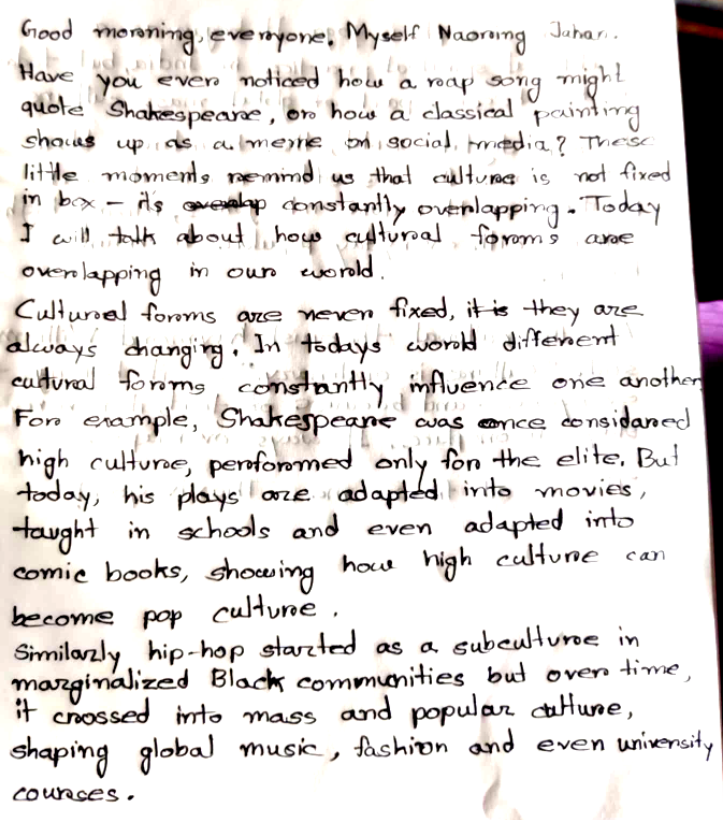 Good morning, everyone. Myself Naorong Jahan.
Have you ever noticed how a rap song might
quote Shakespeare, or how a classical painting
shows up as a meme on social media? These
little moments remind us that culture is not fixed
in box – it's overlap constantly overlapping. Today
I will talk about how cultural forms are
overlapping in our world.
Cultural forms are never fixed, it is they are
always changing. In todays world different
cultural forms constantly influence one another
For example, Shakespeare was once considared
high culture, performed only for the elite. But
today, his plays are adapted into movies,
taught in schools and even adapted into
comic books, showing how high culture can
become pop culture.
Similarly hip-hop started as a subculture in
marginalized Black communities but over time,
it crossed into mass and popular culture,
shaping global music, fashion and even university
courses.